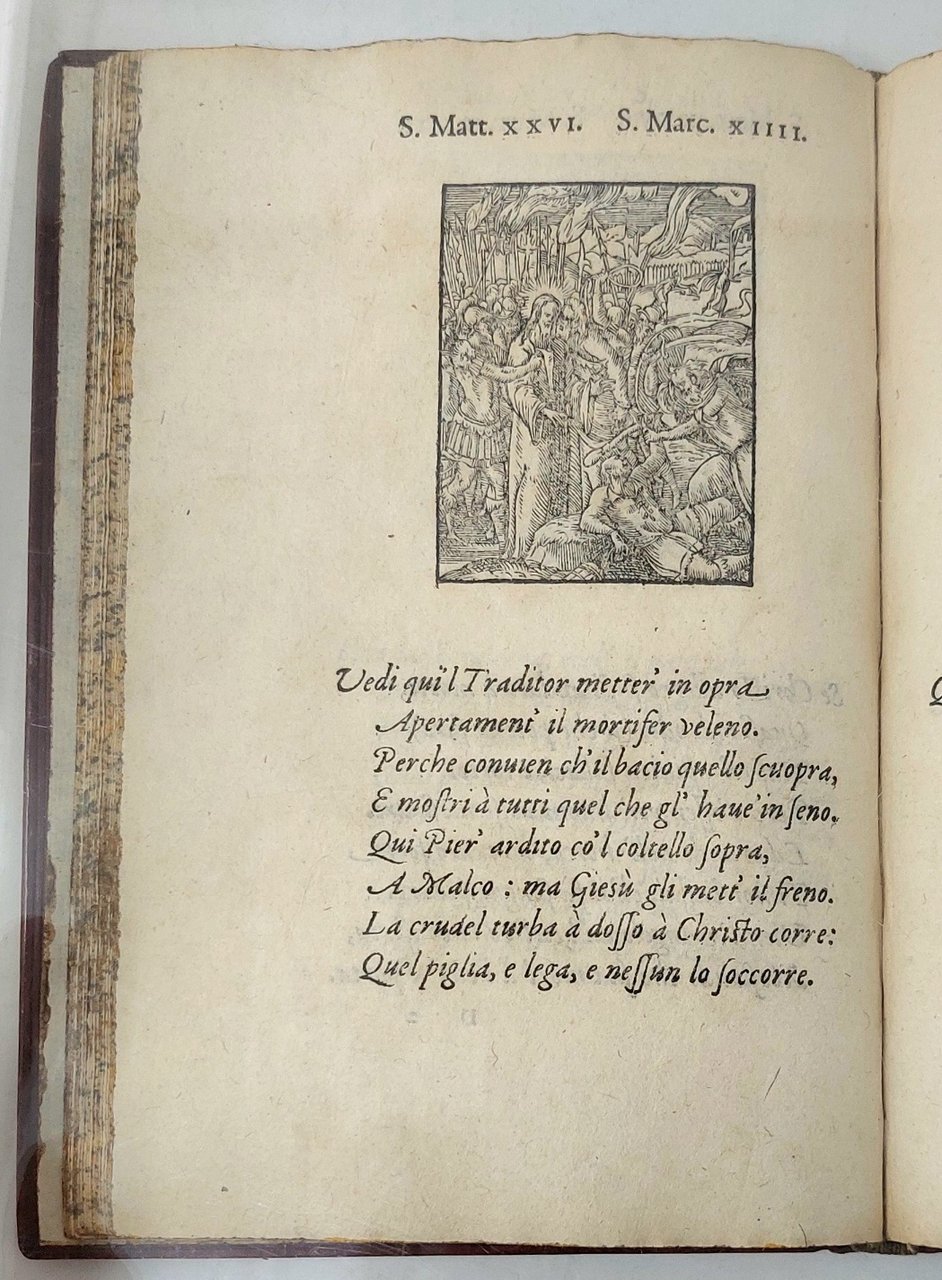 S. Matt. XXVI. S. Marc. XIIII.
Vedi qui'l Traditor metter' in opra
Apertament' il mortifer veleno.
Perche conuien ch'il bacio quello ſcuopra,
E moſtri à tutti quel che gl' haue' in ſeno.
Qui Pier' ardito co'l coltello ſopra,
A Malco : ma Gieſù gli mett' il freno.
La crudel turba à doſſo à Chriſto corre:
Quel piglia, e lega, e neſſun lo ſoccorre.
Q